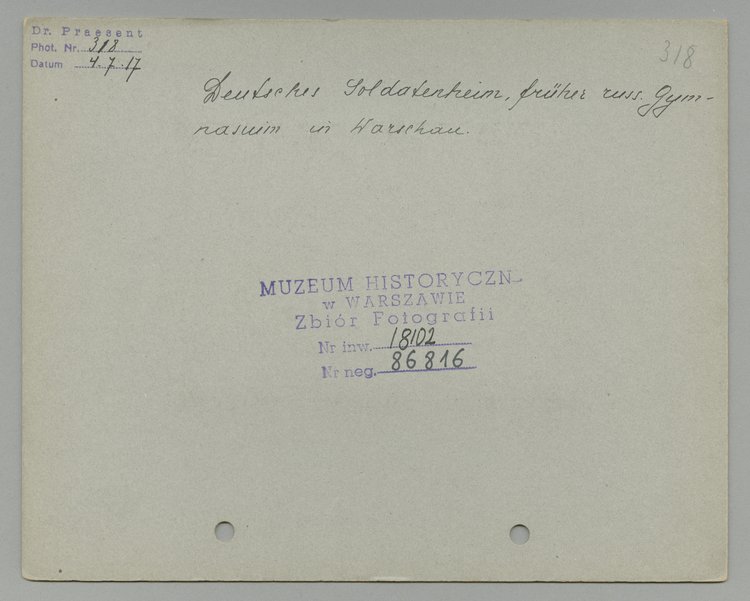 Dr. Praesent
Phot. Nr. 318
Datum 4.7.17
318
Deutsches Soldatenheim, früher russ. Gym-
nasium in Warschau.
MUZEUM HISTORYCZN
w WARSZAWIE
Zbiór Fotografii
Nr inw. 18102
Nr neg. 86816